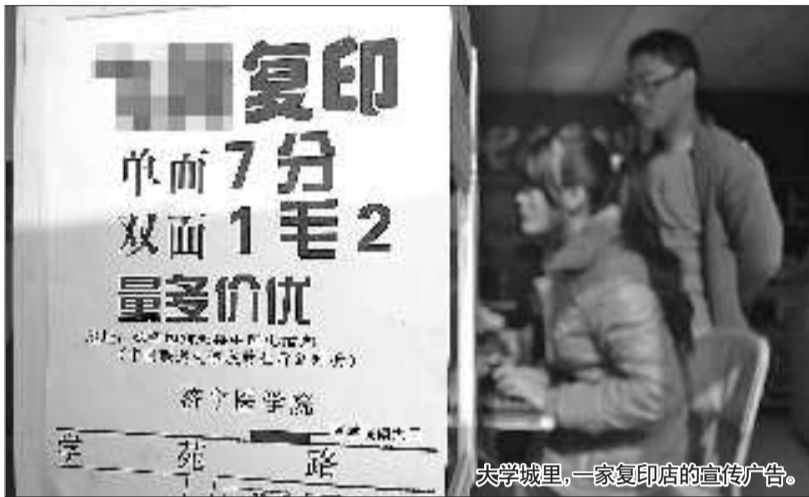 复印
单面7分
双面1毛2
量多价优
济宁医学院
学苑路
大学城里,一家复印店的宣传广告。